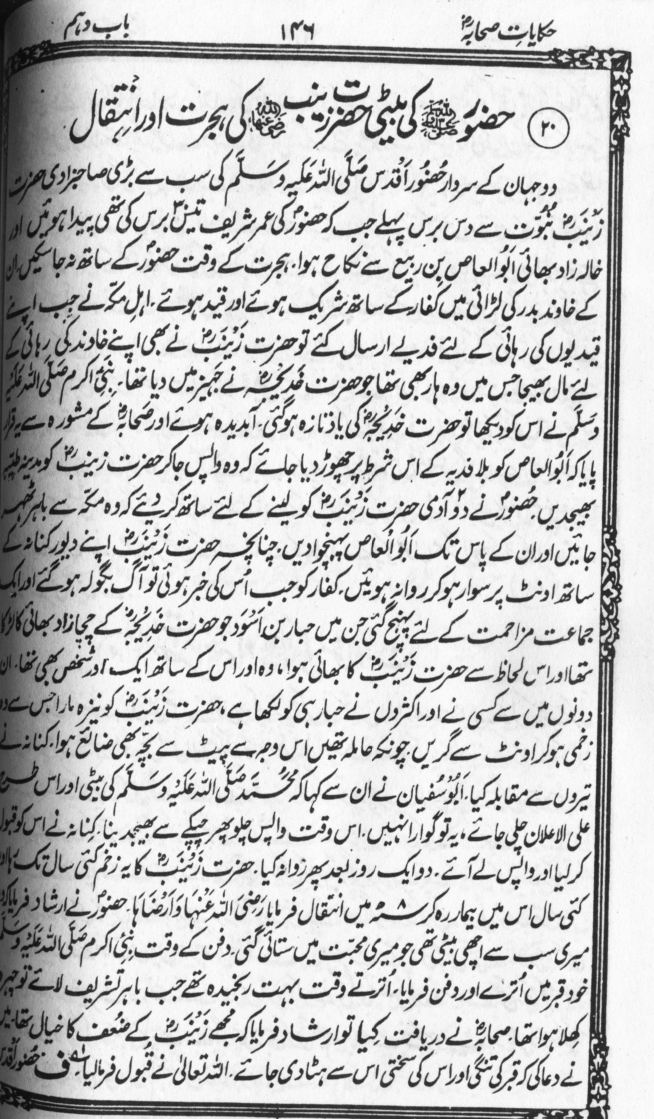 حکایاتِ صحابہؓ ۱۴۶ باب دہم
۲۰ حضورﷺ کی بیٹی حضرت زینبؓ کی ہجرت اور انتقال
دو جہان کے سردار حضور اَقدس صَلَّی اللہُ عَلَیہِ وَسَلَّم کی سب سے بڑی صاحبزادی حضرت
زَینَبؓ نبوّت سے دس برس پہلے جب کہ حضورؐ کی عمر شریف تیس۳۰ برس کی تھی پیدا ہوئیں اور
خالہ زاد بھائی ابُو العاص بن ربیع سے نکاح ہوا. ہجرت کے وقت حضورؐ کے ساتھ نہ جا سکیں. ان
کے خاوند بدر کی لڑائی میں کفار کے ساتھ شریک ہوئے اور قید ہوئے. اہلِ مکہ نے جب اپنے
قیدیوں کی رہائی کے لئے فدیے ارسال کئے تو حضرت زَیْنَبؓ نے بھی اپنے خاوند کی رہائی کے
لئے مال بھیجا جس میں وہ ہار بھی تھا جو حضرت خَدِیجہؓ نے جہیز میں دیا تھا. نبی اکرم صَلَّی اللہُ عَلَیْہِ
وَسَلَّم نے اس کو دیکھا تو حضرت خَدِیجہؓ کی یاد تازہ ہوگئی. آبدیدہ ہوئے اور صحابہؓ کے مشورہ سے یہ قرار
پایا کہ اَبُو العاص کو بلا فدیہ کے اس شرط پر چھوڑ دیا جائے کہ وہ واپس جا کر حضرت زینبؓ کو مدینہ طیبہ
بھیجدیں. حضورؐ نے دو۲ آدمی حضرت زَیْنَبؓ کو لینے کے لئے ساتھ کر دیئے کہ وہ مکہ سے باہر ٹھہر
جائیں اور ان کے پاس تک ابُو العاص پہنچوا دیں. چنانچہ حضرت زَیْنَبؓ اپنے دیور کنانہ کے
ساتھ اونٹ پر سوار ہو کر روانہ ہوئیں. کفار کو جب اُس کی خبر ہوئی تو آگ بگولہ ہو گئے اور ایک
جماعت مزاحمت کے لئے پہنچ گئی جن میں حبار بن اَسْوَد جو حضرت خَدِیجہؓ کے چچا زاد بھائی کا لڑکا
تھا اور اس لحاظ سے حضرت زَیْنَبؓ کا بھائی ہوا، وہ اور اس کے ساتھ ایک اور شخص بھی تھا. ان
دونوں میں سے کسی نے اور اکثروں نے حبار ہی کو لکھا ہے، حضرت زَیْنَبؓ کو نیزہ مارا جس سے وہ
زخمی ہو کر اونٹ سے گریں. چونکہ حاملہ تھیں اس وجہ سے پیٹ سے بچہ بھی ضائع ہوا. کنانہ نے
تیروں سے مقابلہ کیا. ابُو سُفیان نے ان سے کہا کہ مُحَمَّد صَلَّی اللہُ عَلَیْہِ وَسَلَّم کی بیٹی اور اس طرح
علی الاعلان چلی جائے، یہ تو گوارا نہیں. اس وقت واپس چلو پھر چپکے سے بھیجدینا. کنانہ نے اس کو قبول
کر لیا اور واپس لے آئے. دو ایک روز بعد پھر روانہ کیا. حضرت زَیْنَبؓ کا یہ زخم کئی سال تک رہا اور
کئی سال اس میں بیمار رہ کر ۸ھ میں انتقال فرمایا رَضِیَ اللہُ عَنْہَا وَاَرْضَاہَا. حضورؐ نے ارشاد فرمایا کہ وہ
میری سب سے اچھی بیٹی تھی جو میری محبت میں ستائی گئی. دفن کے وقت نبی اکرم صَلَّی اللہُ عَلَیْہِ وَسَلَّم
خود قبر میں اُترے اور دفن فرمایا. اُترتے وقت بہت رنجیدہ تھے جب باہر تشریف لائے تو چہرہ
کھلا ہوا تھا. صحابہؓ نے دریافت کیا تو ارشاد فرمایا کہ مجھے زَیْنَبؓ کے ضُعف کا خیال تھا. میں
نے دعا کی کہ قبر کی تنگی اور اس کی سختی اس سے ہٹا دی جائے. اللہ تعالیٰ نے قبول فرما لیا. ف حضور اقدس